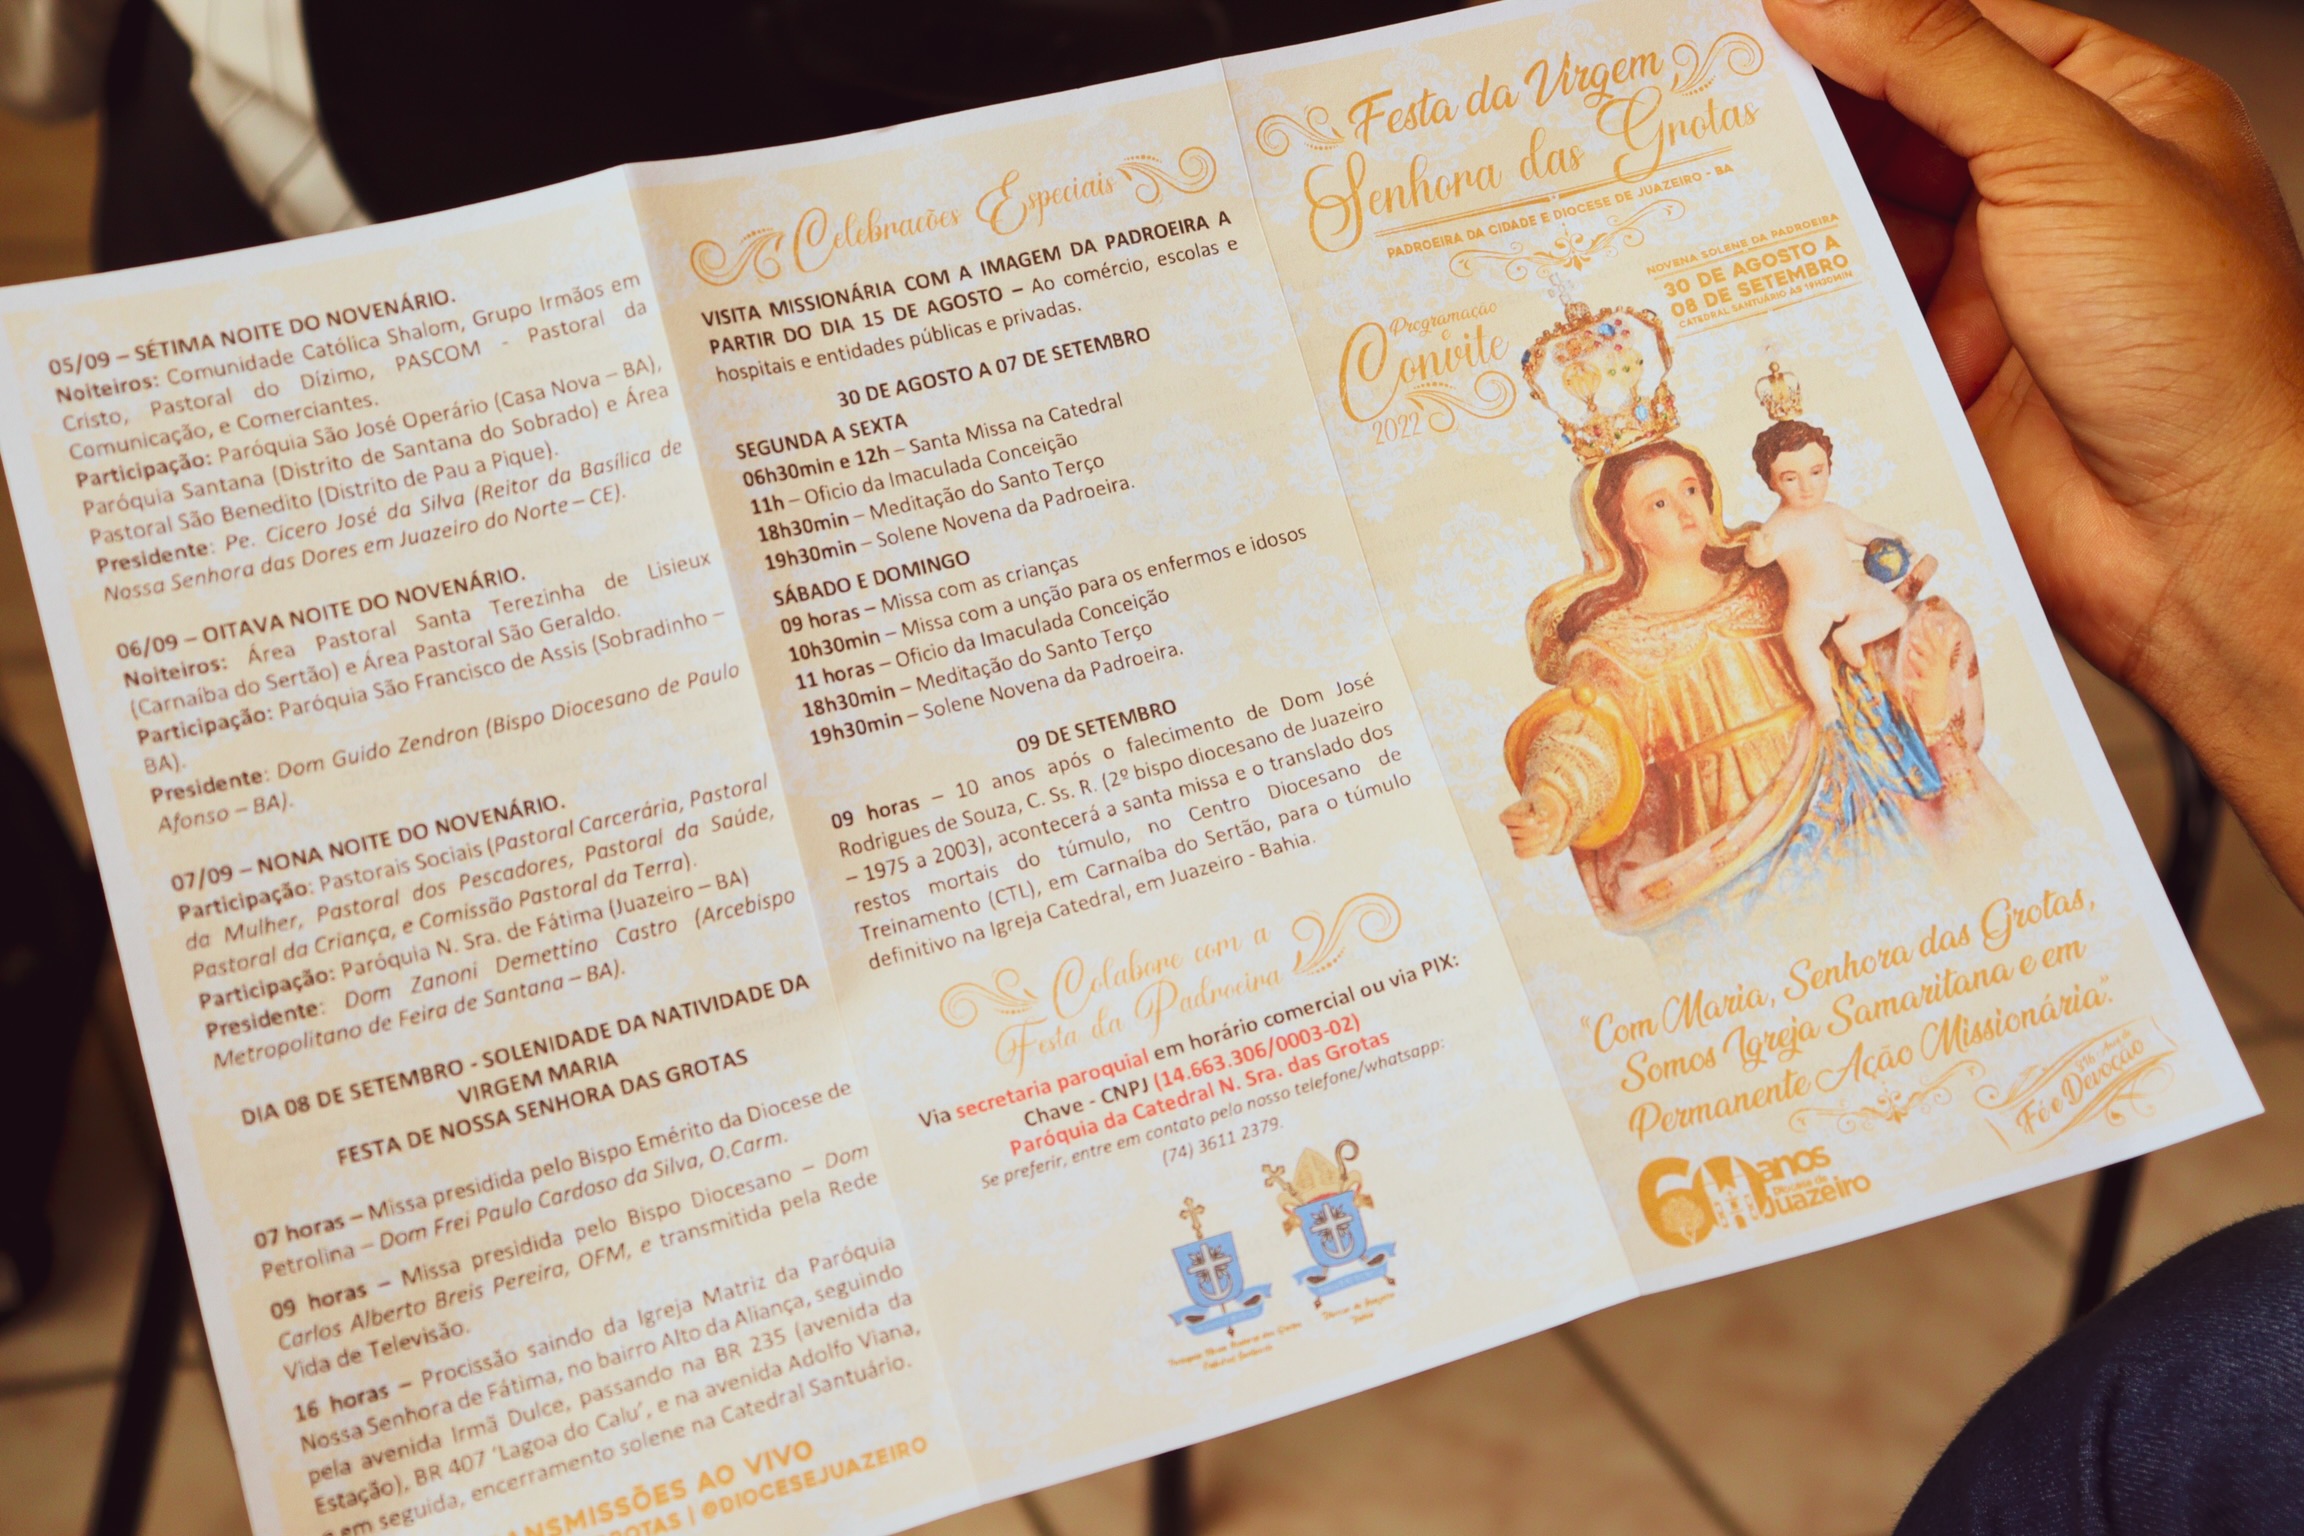 05/09 – SÉTIMA NOITE DO NOVENÁRIO.
Noiteiros: Comunidade Católica Shalom, Grupo Irmãos em
Cristo, Pastoral do Dízimo, PASCOM - Pastoral da
Comunicação, e Comerciantes.
Participação: Paróquia São José Operário (Casa Nova – BA),
Paróquia Santana (Distrito de Santana do Sobrado) e Área
Pastoral São Benedito (Distrito de Pau a Pique).
Presidente: Pe. Cícero José da Silva (Reitor da Basílica de
Nossa Senhora das Dores em Juazeiro do Norte – CE).
06/09 – OITAVA NOITE DO NOVENÁRIO.
Noiteiros: Área Pastoral Santa Terezinha de Lisieux
(Carnaíba do Sertão) e Área Pastoral São Geraldo.
Participação: Paróquia São Francisco de Assis (Sobradinho –
BA).
Presidente: Dom Guido Zendron (Bispo Diocesano de Paulo
Afonso – BA).
07/09 – NONA NOITE DO NOVENÁRIO.
Participação: Pastorais Sociais (Pastoral Carcerária, Pastoral
da Mulher, Pastoral dos Pescadores, Pastoral da Saúde,
Pastoral da Criança, e Comissão Pastoral da Terra).
Participação: Paróquia N. Sra. de Fátima (Juazeiro – BA)
Presidente: Dom Zanoni Demettino Castro (Arcebispo
Metropolitano de Feira de Santana – BA).
DIA 08 DE SETEMBRO - SOLENIDADE DA NATIVIDADE DA
VIRGEM MARIA
FESTA DE NOSSA SENHORA DAS GROTAS
07 horas – Missa presidida pelo Bispo Emérito da Diocese de
Petrolina – Dom Frei Paulo Cardoso da Silva, O.Carm.
09 horas – Missa presidida pelo Bispo Diocesano – Dom
Carlos Alberto Breis Pereira, OFM, e transmitida pela Rede
Vida de Televisão.
16 horas – Procissão saindo da Igreja Matriz da Paróquia
Nossa Senhora de Fátima, no bairro Alto da Aliança, seguindo
pela avenida Irmã Dulce, passando na BR 235 (avenida da
Estação), BR 407 ‘Lagoa do Calu’, e na avenida Adolfo Viana,
e em seguida, encerramento solene na Catedral Santuário.
ANSMISSÕES AO VIVO
ROTAS | @DIOCESEJUAZEIRO
Celebrações Especiais
VISITA MISSIONÁRIA COM A IMAGEM DA PADROEIRA A
PARTIR DO DIA 15 DE AGOSTO – Ao comércio, escolas e
hospitais e entidades públicas e privadas.
30 DE AGOSTO A 07 DE SETEMBRO
SEGUNDA A SEXTA
06h30min e 12h – Santa Missa na Catedral
11h – Oficio da Imaculada Conceição
18h30min – Meditação do Santo Terço
19h30min – Solene Novena da Padroeira.
SÁBADO E DOMINGO
09 horas – Missa com as crianças
10h30min – Missa com a unção para os enfermos e idosos
11 horas – Oficio da Imaculada Conceição
18h30min – Meditação do Santo Terço
19h30min – Solene Novena da Padroeira.
09 DE SETEMBRO
09 horas – 10 anos após o falecimento de Dom José
Rodrigues de Souza, C. Ss. R. (2º bispo diocesano de Juazeiro
– 1975 a 2003), acontecerá a santa missa e o translado dos
restos mortais do túmulo, no Centro Diocesano de
Treinamento (CTL), em Carnaíba do Sertão, para o túmulo
definitivo na Igreja Catedral, em Juazeiro - Bahia.
Colabore com a
Festa da Padroeira
Via secretaria paroquial em horário comercial ou via PIX:
Chave - CNPJ (14.663.306/0003-02)
Paróquia da Catedral N. Sra. das Grotas
Se preferir, entre em contato pelo nosso telefone/whatsapp:
(74) 3611 2379.
Festa da Virgem
Senhora das Grotas
PADROEIRA DA CIDADE E DIOCESE DE JUAZEIRO - BA
NOVENA SOLENE DA PADROEIRA
30 DE AGOSTO A
08 DE SETEMBRO
CATEDRAL SANTUÁRIO ÀS 19H30MIN
Programação
e
Convite
2022
“Com Maria, Senhora das Grotas,
Somos Igreja Samaritana e em
Permanente Ação Missionária”.
316 Anos de
Fé e Devoção
60 anos
Diocese de
Juazeiro